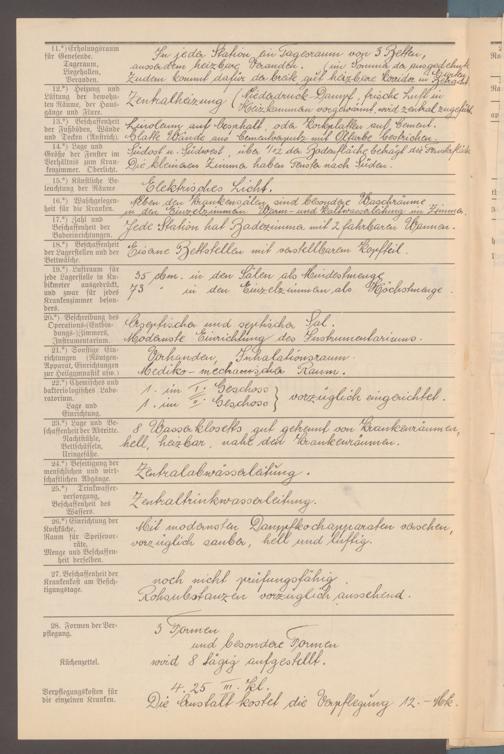 11.*) Erholungsraum für Genesende. Tageraum, Liegehallen, Veranden.
In jeder Station, ein Tagesraum von 3 Betten,
ausserdem heizbare Veranden. (in Summa da ausgedehnte
zudem kommt dafür da breite gut heizbare Korridor in
12.*) Heizung und Lüftung der bewohnten Räume, der Hausgänge und Flure.
Zentralheizung (Niederdruck-Dampf, frische Luft in
Heizkammern vorgewärmt, wird zentral zugeführt
13.*) Beschaffenheit der Fußböden, Wände und Decken (Anstrich).
Linoleum auf Asphalt, oder Korkplatten auf Cement.
Glatte Wände aus Cementverputz mit Farbe bestrichen.
14.*) Lage und Größe der Fenster im Verhältnis zum Krankenzimmer. Oberlicht.
Südost u. Südwest, über 1/12 der Bodenfläche beträgt die Fensterfläche
Die kleineren Zimmer haben Fenster nach Süden.
15.*) Künstliche Beleuchtung der Räume
Elektrisches Licht.
16.*) Waschgelegenheit für die Kranken.
Neben den Krankensälen sind besondere Waschräume
in den Einzelzimmern Warm- und Kaltwasserleitung im Zimmer.
17.*) Zahl und Beschaffenheit der Badeeinrichtungen.
Jede Station hat Badezimmer mit 2 fahrbaren Wannen.
18.*) Beschaffenheit der Lagerstellen und der Bettwäsche.
Eiserne Bettstellen mit verstellbarem Kopfteil.
19.*) Luftraum für jede Lagerstelle in Kubikmeter ausgedrückt, und zwar für jedes Krankenzimmer besonders.
35 cbm. in den Sälen als Mindestmenge
73 " in den Einzelzimmern als Höchstmenge.
20.*) Beschreibung des Operations-(Entbindungs-)Zimmers, Instrumentarium.
Aseptischer und septischer Saal.
Modernste Einrichtung des Instrumentariums.
21.*) Sonstige Einrichtungen (Röntgen-Apparat, Einrichtungen zur Heilgymnastik usw.)
Vorhanden, Inhalationsraum.
Mediko-mechanischer Raum.
22.*) Chemisches und bakteriologisches Laboratorium. Lage und Einrichtung.
1. im I. Geschoss
1. im II. Geschoss } vorzüglich eingerichtet.
23.*) Lage und Beschaffenheit der Abtritte. Nachtstühle, Bettschüsseln, Uringefäße.
8 Wasserklosetts gut getrennt von Krankenräumen,
hell, heizbar, nahe den Krankenräumen.
24.*) Beseitigung der menschlichen und wirtschaftlichen Abgänge.
Zentralabwässerleitung.
25.*) Trinkwasserversorgung, Beschaffenheit des Wassers.
Zentraltrinkwasserleitung.
26.*) Einrichtung der Kochküche. Raum für Speisevorräte. Menge und Beschaffenheit derselben.
Mit modernsten Dampfkochapparaten versehen,
vorzüglich sauber, hell und luftig.
27. Beschaffenheit der Krankenkost am Besichtigungstage.
noch nicht prüfungsfähig.
Rohsubstanzen vorzüglich aussehend.
28. Formen der Verpflegung.
3 Formen
und besondere Formen
Küchenzettel.
wird 8 tägig aufgestellt.
Verpflegungskosten für die einzelnen Kranken.
4.25 III. Kl.
Die Anstalt kostet die Verpflegung 12.- Mk.